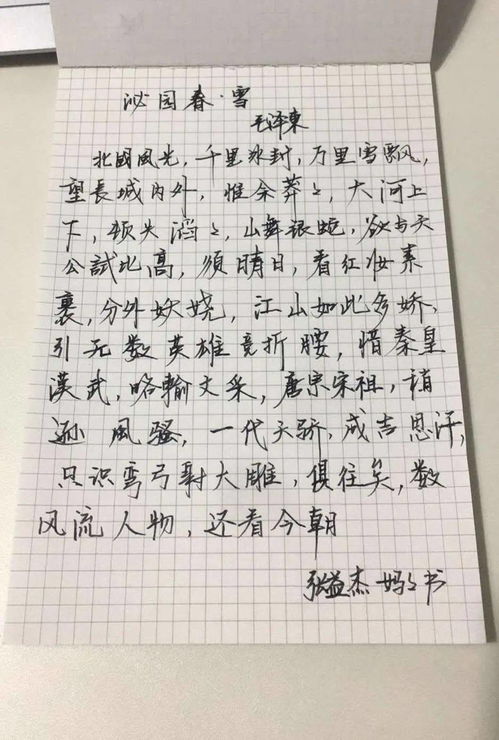 沁园春·雪
毛泽東
北國風光，千里冰封，万里雪飘，
望長城內外，惟余莽々，大河上
下，顿失滔々，山舞银蛇，欲与天
公試比高，须晴日，看红妆素
裹，分外妖娆，江山如此多娇，
引无数英雄竞折腰，惜秦皇
漢武，略輸文采，唐宗宋祖，稍
逊風骚，一代天骄，成吉思汗，
只识弯弓射大雕，俱往矣，数
风流人物，还看今朝
张益杰妈々书